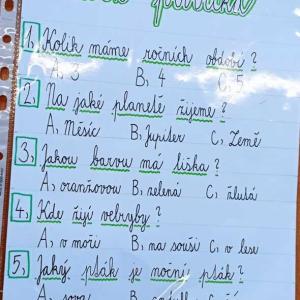 1, Kolik máme ročních období?
A, 3 B, 4 C, 5
2, Na jaké planetě žijeme?
A, Měsíc B, Jupiter C, Země
3, Jakou barvu má liška?
A, oranžovou B, zelená C, žlutá
4, Kde žijí velryby?
A, v moři B, na souši C, v lese
5, Jaký pták je noční pták?
A, sova B,